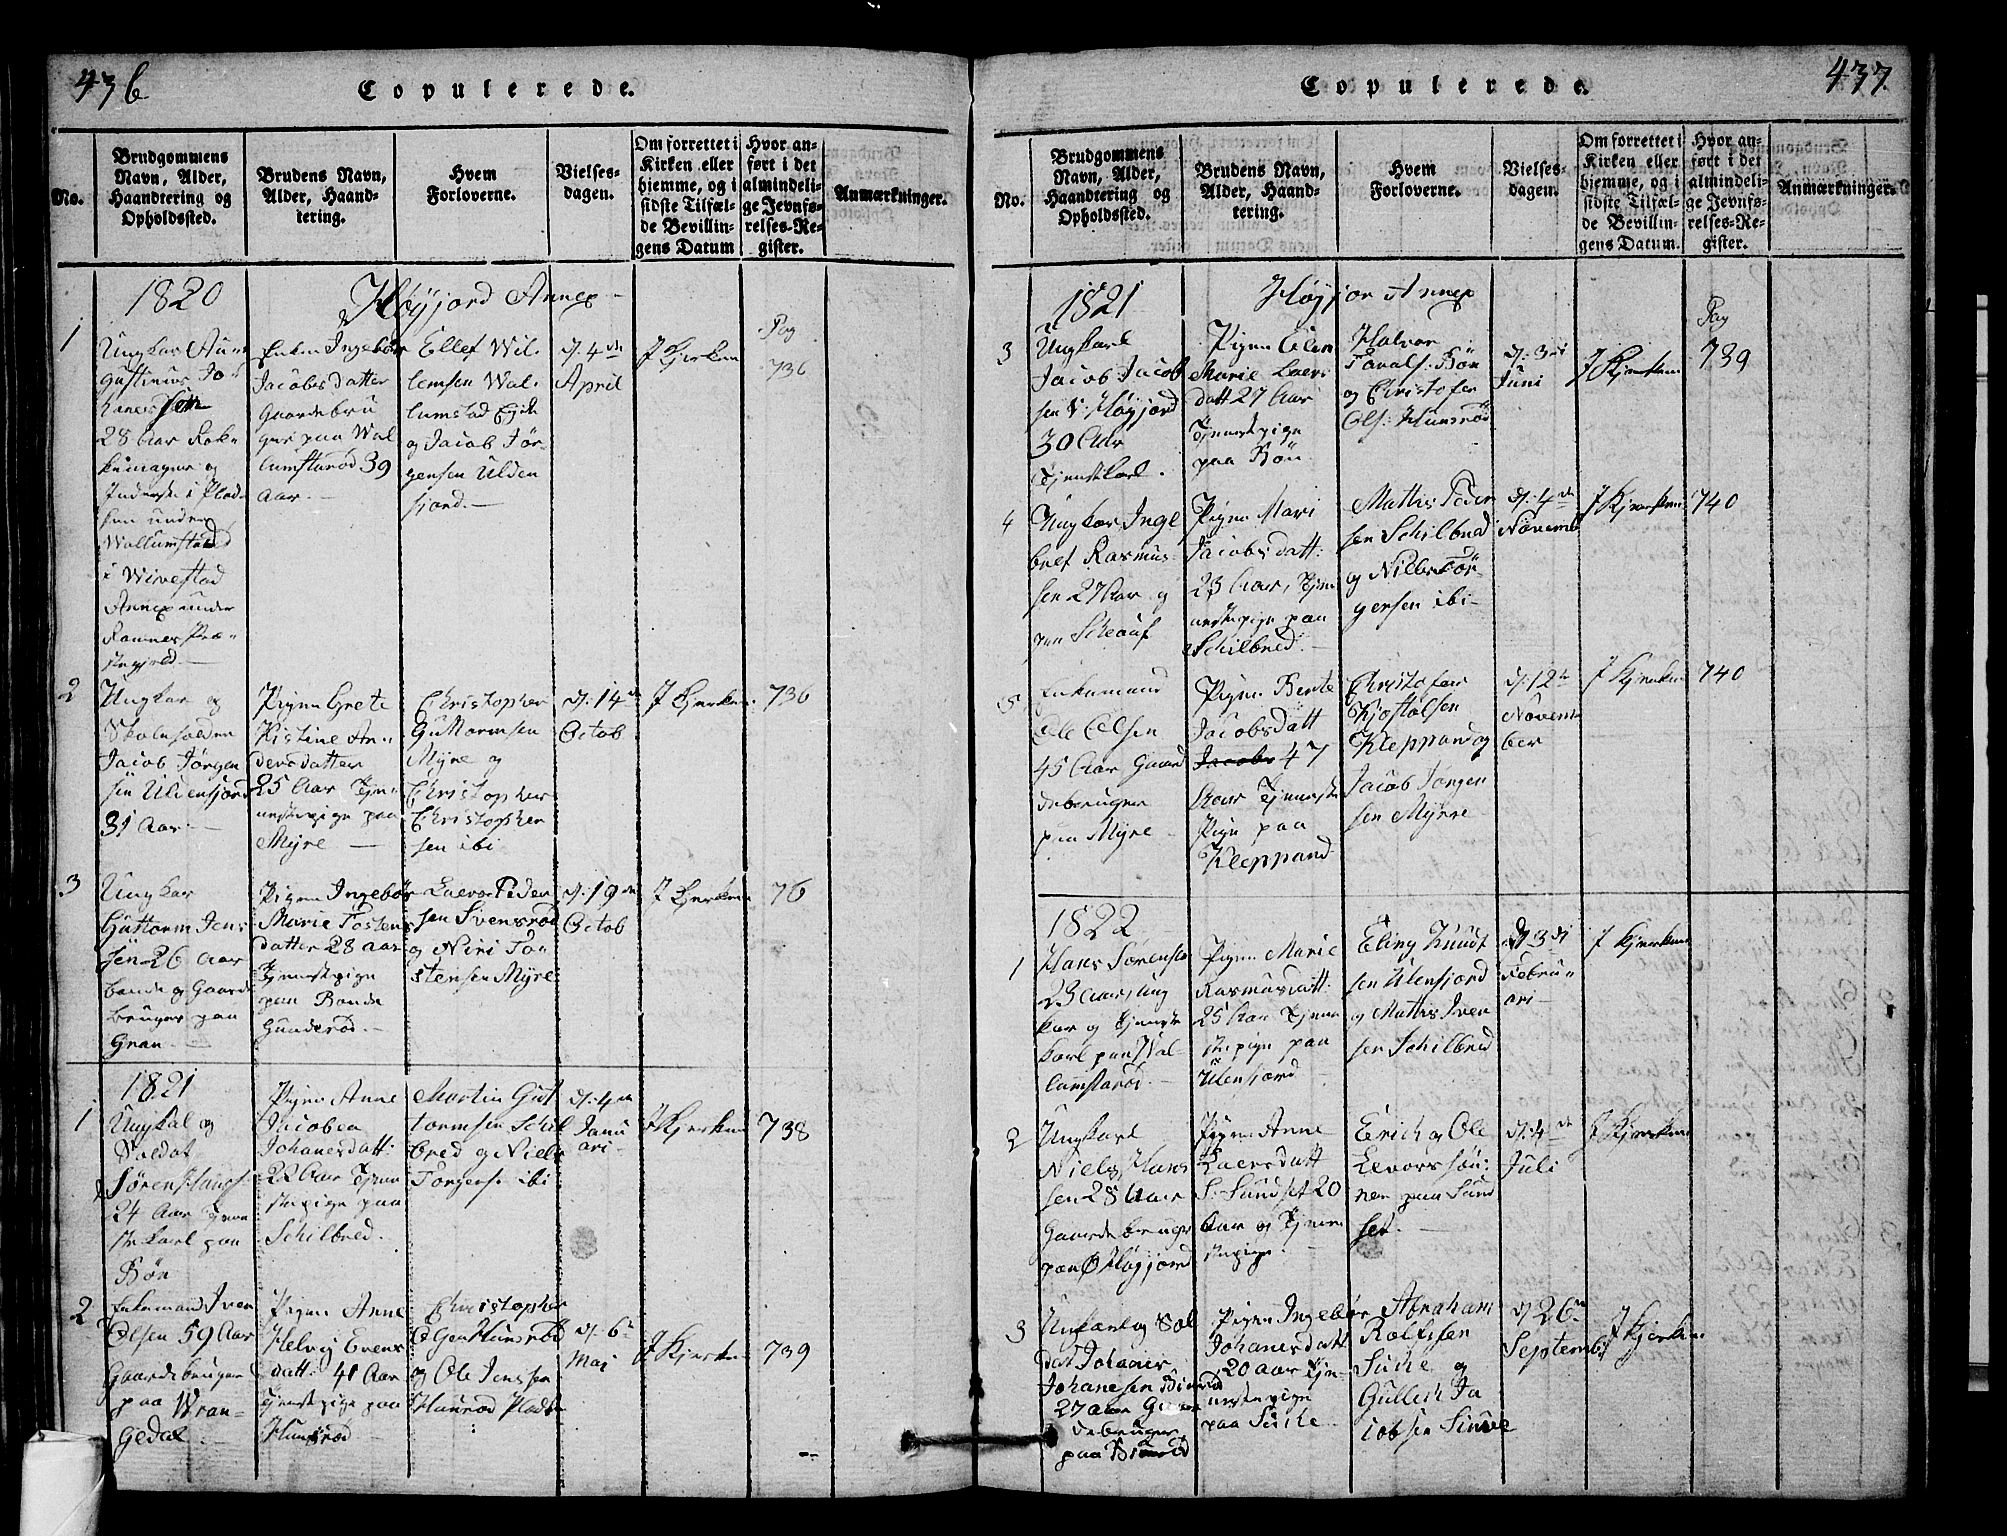 436
Copulerede.
No.
Brudgommens
Navn, Alder,
Haandtering og
Opholdssted.
Brudens Navn,
Alder, Haand-
tering.
Hvem
Forloverne.
Vielses-
dagen.
Om forrettet i
Kirken eller
hjemme, og i
sidste Tilfæl-
de Bevillin-
gens Datum
Hvor an-
ført i det
almindeli-
ge Jevnfø-
relses-Re-
gister.
Anmærkninger.
1820
Høyjord Annex
1
Ungkar Au-
gustinus Jo-
hanessen
28 Aar
Inderste i Plad-
sen under
Wallumstad
i Wivestad
Annex under
Ramnes Præ-
stegjeld.
Enken Ingebør
Jacobsdatter
Gaardebru
ger paa Wal
lumstarød 39
Aar.
Ellef Wil-
lemsen Wal-
lumstad
og Jacob Jør-
gensen Ulden
sjord.
d. 4de
April
I Kjerken
Pag
736
2
Ungkar og
Jacob Jørgen
sen Uldensjord
31 Aar.
Pigen Grete
Kistine An-
dersdatter
25 Aar Tjen-
estepige paa
Myre
Christopher
Guttormsen
Myre og
Christopher
Christopher
sen ibi
d. 14de
Octob
I Kjerken
736
3
Ungkar
Guttorm Jens
sen 26 Aar
bonde og Gaarde
bruger paa
Gran.
Pigen Ingebør
Marie Tostens
datter 28 aar
Tjenestepige
paa Bonde
Gunderød.
Laers Peder
sen Svensrød
og Niri To-
stensen Myre
d. 19de
Octob
I Kjerken
76
1821
1
Ungkal og
Soldat
Søren Hans:
24 Aar Tjene
ste karl paa
Bøn
Pigen Anne
Jacobea
Johanesdatt:
22 Aar Tjene
stepige paa
Schilbred.
Martin Gut
tormsen Schil
bred og Niels
Torgers: ibi
d. 4de
Janu
ari
I Kjerken
738
2
Enkemand Iver
Olsen 59 Aar
Gaardebruger
paa Wran-
gedal
Pigen Anne
Helvig Evens
datt: 41 Aar
Tjenestepige paa
Hunsrød
Christopher
Olsen Hunsrød
og Ole Jenssen
Hunsrød Plads
d. 6te
Maj
I Kjerken
739
437.
Copulerede.
No.
Brudgommens
Navn, Alder,
Haandtering og
Opholdssted.
Brudens Navn,
Alder, Haand-
tering.
Hvem
Forloverne.
Vielses-
dagen.
Om forrettet i
Kirken eller
hjemme, og i
sidste Tilfæl-
de Bevillin-
gens Datum.
Hvor an-
ført i det
almindeli-
ge Jevnfø-
relses-Re-
gister.
Anmærkninger.
1821
Høyjor Annex
3
Ungkarl
Jacob Jacob
sen V: Høyjord
30 Aar
Tjenstkarl.
Pigen Elen
Marie Laers
datt 27 Aar
Tjenestepige
paa Bøn
Halvor
Bøn
og Christofer
Ols: Hunsrød
d. 3die
Juni
I Kjerken
Pag
739
4
Ungkar Inge
bret Rasmus-
sen 27 Aar
paa
Pigen Mari
Jacobsdatt:
23 Aar, Tjen
estepige paa
Schilbred.
Mathis Peder
sen Schilbred
og Niels Tør-
gersen ibi
d. 4de
Novemb
I Kjerken
740
5
Enkemand
Ole Olsen
45 Aar Gaard
debruger
paa Myre
Pigen Berte
Jacobsdatt
Jacobs 47
Aar Tjeneste
Pige paa
Kleppand
Christofer
Kjøstolsen
Kleppand og
Jacob Jorgen
sen Myrre
d. 12te
Novem
ber
I Kjerken
740
1822
1
Hans Sørensen
23 Aar, ung
kar og Tjeneste
karl paa Wal-
lumstarød.
Pigen Marie
Rasmusdatt:
25 Aar Tjene
stepige paa
Ulensjord
Eling Knudt
sen Ulensjord
og Mathis Iver
sen Schilbred
d 3di
Febru-
ari
I Kjerken
2
Ungkarl
Niels Hans
sen 28 Aar
Gaardebruger
paa Ø Høyjord
Pigen Anne
Laersdatt
S: Sundset 20
Aar og Tjene
stepige.
Erich og Ole
Levors søn-
ner paa Sund
set.
d. 4de
Juli
I Kjerken
3
Unkarl og Sol
dat Johanes
Johanesen
27 aar Gaar
debruger
paa
Pigen Ingebør
Johanesdatt
20 aar Tje-
nestepige
paa
Abraham
Rolfssen
og
Gullich Ja
cobsen
d 26de
September
I Kjerken